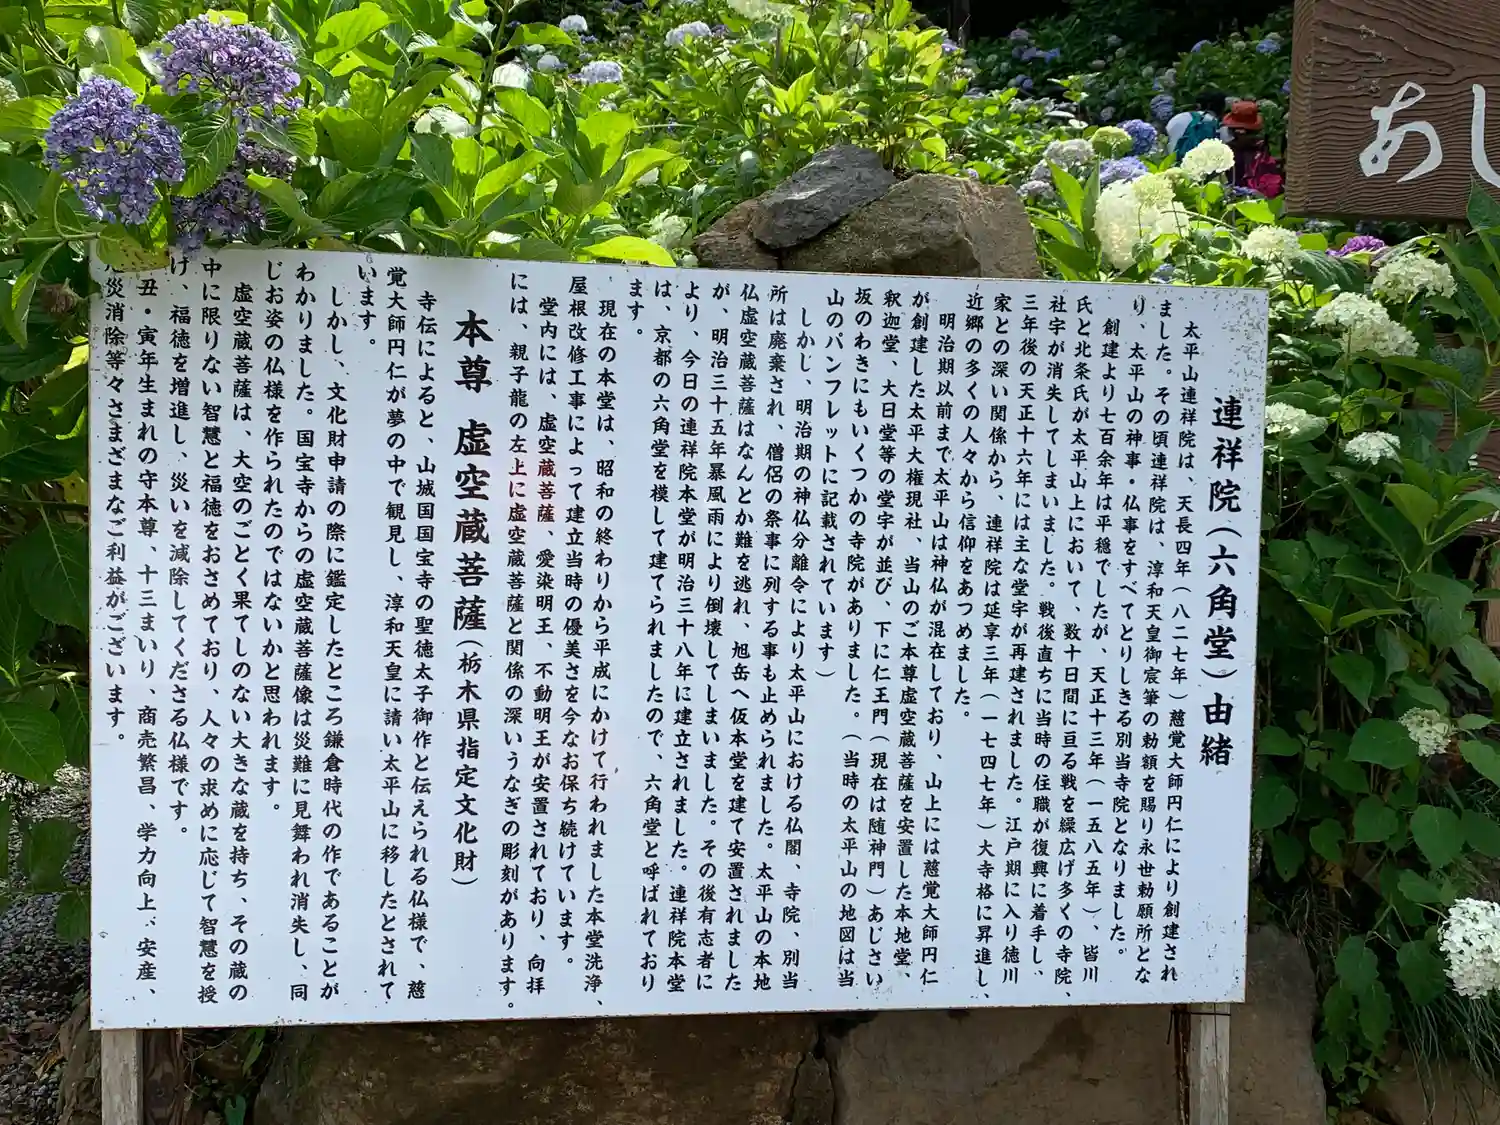 あし
連祥院（六角堂）由緒
太平山連祥院は、天長四年（八二七年）慈覚大師円仁により創建され
ました。その頃連祥院は、淳和天皇御宸筆の勅額を賜り永世勅願所とな
り、太平山の神事・仏事をすべてとりしきる別当寺院となりました。
創建より七百余年は平穏でしたが、天正十三年（一五八五年）、皆川
氏と北条氏が太平山上において、数十日間に亘る戦を繰広げ多くの寺院、
社宇が消失してしまいました。戦後直ちに当時の住職が復興に着手し、
三年後の天正十六年には主な堂宇が再建されました。江戸期に入り徳川
家との深い関係から、連祥院は延享三年（一七四七年）大寺格に昇進し、
近郷の多くの人々から信仰をあつめました。
明治期以前まで太平山は神仏が混在しており、山上には慈覚大師円仁
が創建した太平大権現社、当山のご本尊虚空蔵菩薩を安置した本地堂、
釈迦堂、大日堂等の堂宇が並び、下に仁王門（現在は随神門）あじさい
坂のわきにもいくつかの寺院がありました。（当時の太平山の地図は当
山のパンフレットに記載されています）
しかし、明治期の神仏分離令により太平山における仏閣、寺院、別当
所は廃棄され、僧侶の祭事に列する事も止められました。太平山の本地
仏虚空蔵菩薩はなんとか難を逃れ、旭岳へ仮本堂を建て安置されました
が、明治三十五年暴風雨により倒壊してしまいました。その後有志者に
より、今日の連祥院本堂が明治三十八年に建立されました。連祥院本堂
は、京都の六角堂を模して建てられましたので、六角堂と呼ばれており
ます。
現在の本堂は、昭和の終わりから平成にかけて行われました本堂洗浄、
屋根改修工事によって建立当時の優美さを今なお保ち続けています。
堂内には、虚空蔵菩薩、愛染明王、不動明王が安置されており、向拝
には、親子龍の左上に虚空蔵菩薩と関係の深いうなぎの彫刻があります。
本尊 虚空蔵菩薩（栃木県指定文化財）
寺伝によると、山城国国宝寺の聖徳太子御作と伝えられる仏様で、慈
覚大師円仁が夢の中で観見し、淳和天皇に請い太平山に移したとされて
います。
しかし、文化財申請の際に鑑定したところ鎌倉時代の作であることが
わかりました。国宝寺からの虚空蔵菩薩像は災難に見舞われ消失し、同
じお姿の仏様を作られたのではないかと思われます。
虚空蔵菩薩は、大空のごとく果てしのない大きな蔵を持ち、その蔵の
中に限りない智慧と福徳をおさめており、人々の求めに応じて智慧を授
け、福徳を増進し、災いを減除してくださる仏様です。
丑・寅年生まれの守本尊、十三まいり、商売繁昌、学力向上、安産、
災消除等々さまざまなご利益がございます。